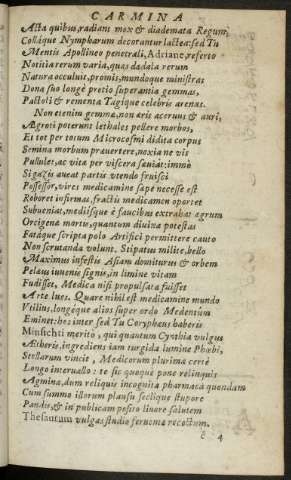 CARMINA
Acta quibus, radiant mox & diademata Regum,
Collaque Nympharum decorantur lactea: sed Tu
Mentis Apollineo penetrali, Adriane, referto
Notitia rerum varia, quas dadala rerum
Natura occuluit, promis, mundoque ministras
Dona suo longè pretio superantia gemmas,
Pactoli & rementa Tagique celebris arenas.
Non etenim gemma, non aris acervus & auri,
Ægroti poterunt lethales pellere morbos,
Et tot per totum Microcosmi didita corpus
Semina morborum pravertere, noxia ne vis
Pullulet, ac vita per viscera saviat: immò
Si gazis aveat partis vtendo fruisci
Possessor, vires medicamine sape necesse est
Roboret infirmas, fractis medicamen oportet
Subveniat, mediisque è faucibus extrahat agrum
Orcigena mortis, quantum divina potestas
Fataque scripta polo Artifici permittere cauto
Non scrutanda volunt. Stipatus milite, bello
Maximus infestis Asiam domiturus & orbem
Pelaus iuvenis signis, in limine vitam
Fudisset, Medica nisi propulsata fuisset
Arte lues. Quare nihil est medicamine mundo
Vtilius, longeque alios super ordo Medentum
Eminet: hos inter sed Tu Coryphaus haberis
Minsichti meritò, qui quantum Cynthia vulgus
Ætheris, ingrediens iam turgida lumine Phœbi,
Stellarum vincit, Medicorum plurima certè
Longo intervallo: te sic quoque pone relinquis
Agmina, dum reliquis incognita pharmaca quondam
Cum summo illorum plausu seclique stupore
Pandis, & in publicam pesiro livore salutem
Thesaurum vulgas studio feruente recoctum.
c 4